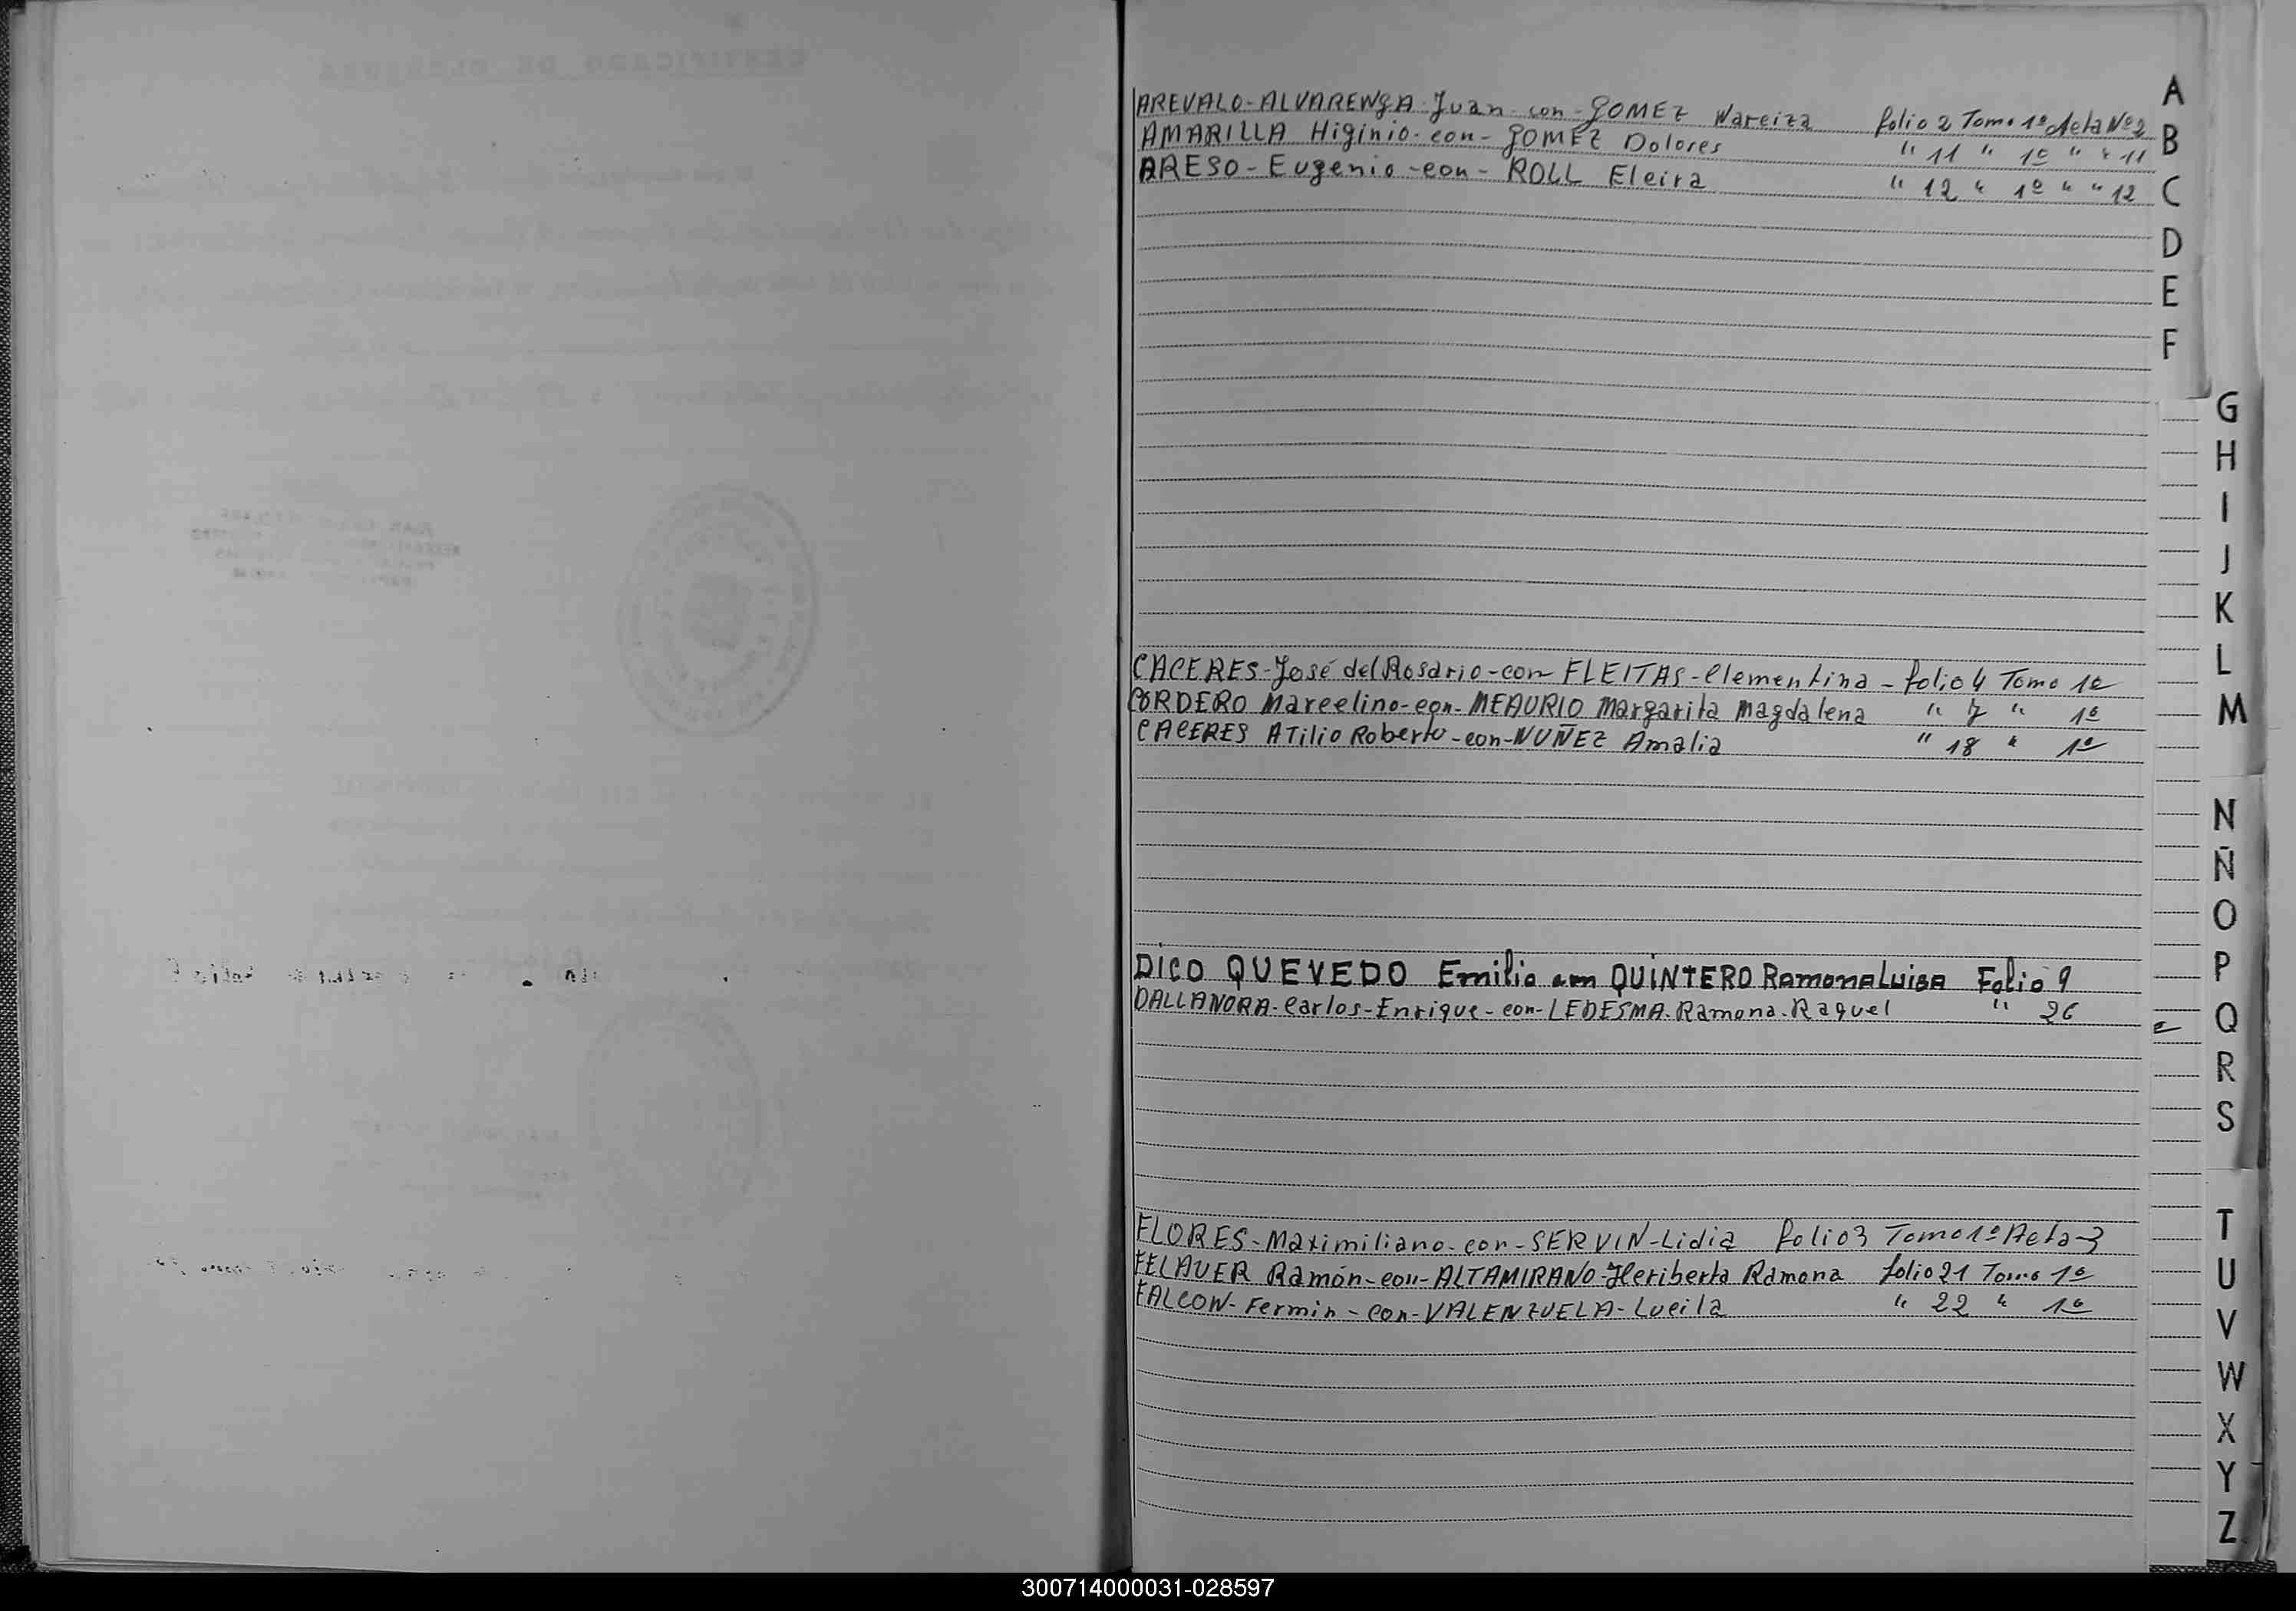 AREVALO-ALVARENGA-Juan-con-GOMEZ Narciza folio 2 Tomo 1º Acta Nº2
AMARILLA Higinio-con-GOMEZ Dolores " 11 " 1º " " 11
ARESO-Eugenio-con-ROLL Elcira " 12 " 1º " " 12
CACERES-José del Rosario-con FLEITAS-Clementina-folio 4 Tomo 1º
CORDERO Marcelino-con-MEAURIO Margarita Magdalena " 7 " 1º
CACERES ATilio Roberto-con-NUÑEZ Amalia " 18 " 1º
DICO QUEVEDO Emilio con QUINTERO Ramona Luisa Folio 9
DALLANORA-Carlos-Enrique-con-LEDESMA-Ramona-Raquel " 26
FLORES-Maximiliano-con-SERVIN-Lidia folio 3 Tomo 1º Acta-3
FELAUER Ramón-con-ALTAMIRANO-Heriberta Ramona folio 21 Tomo 1º
FALCON-Fermin-con-VALENZUELA-Lucila " 22 " 1º
A
B
C
D
E
F
G
H
I
J
K
L
M
N
Ñ
O
P
Q
R
S
T
U
V
W
X
Y
Z
300714000031-028597